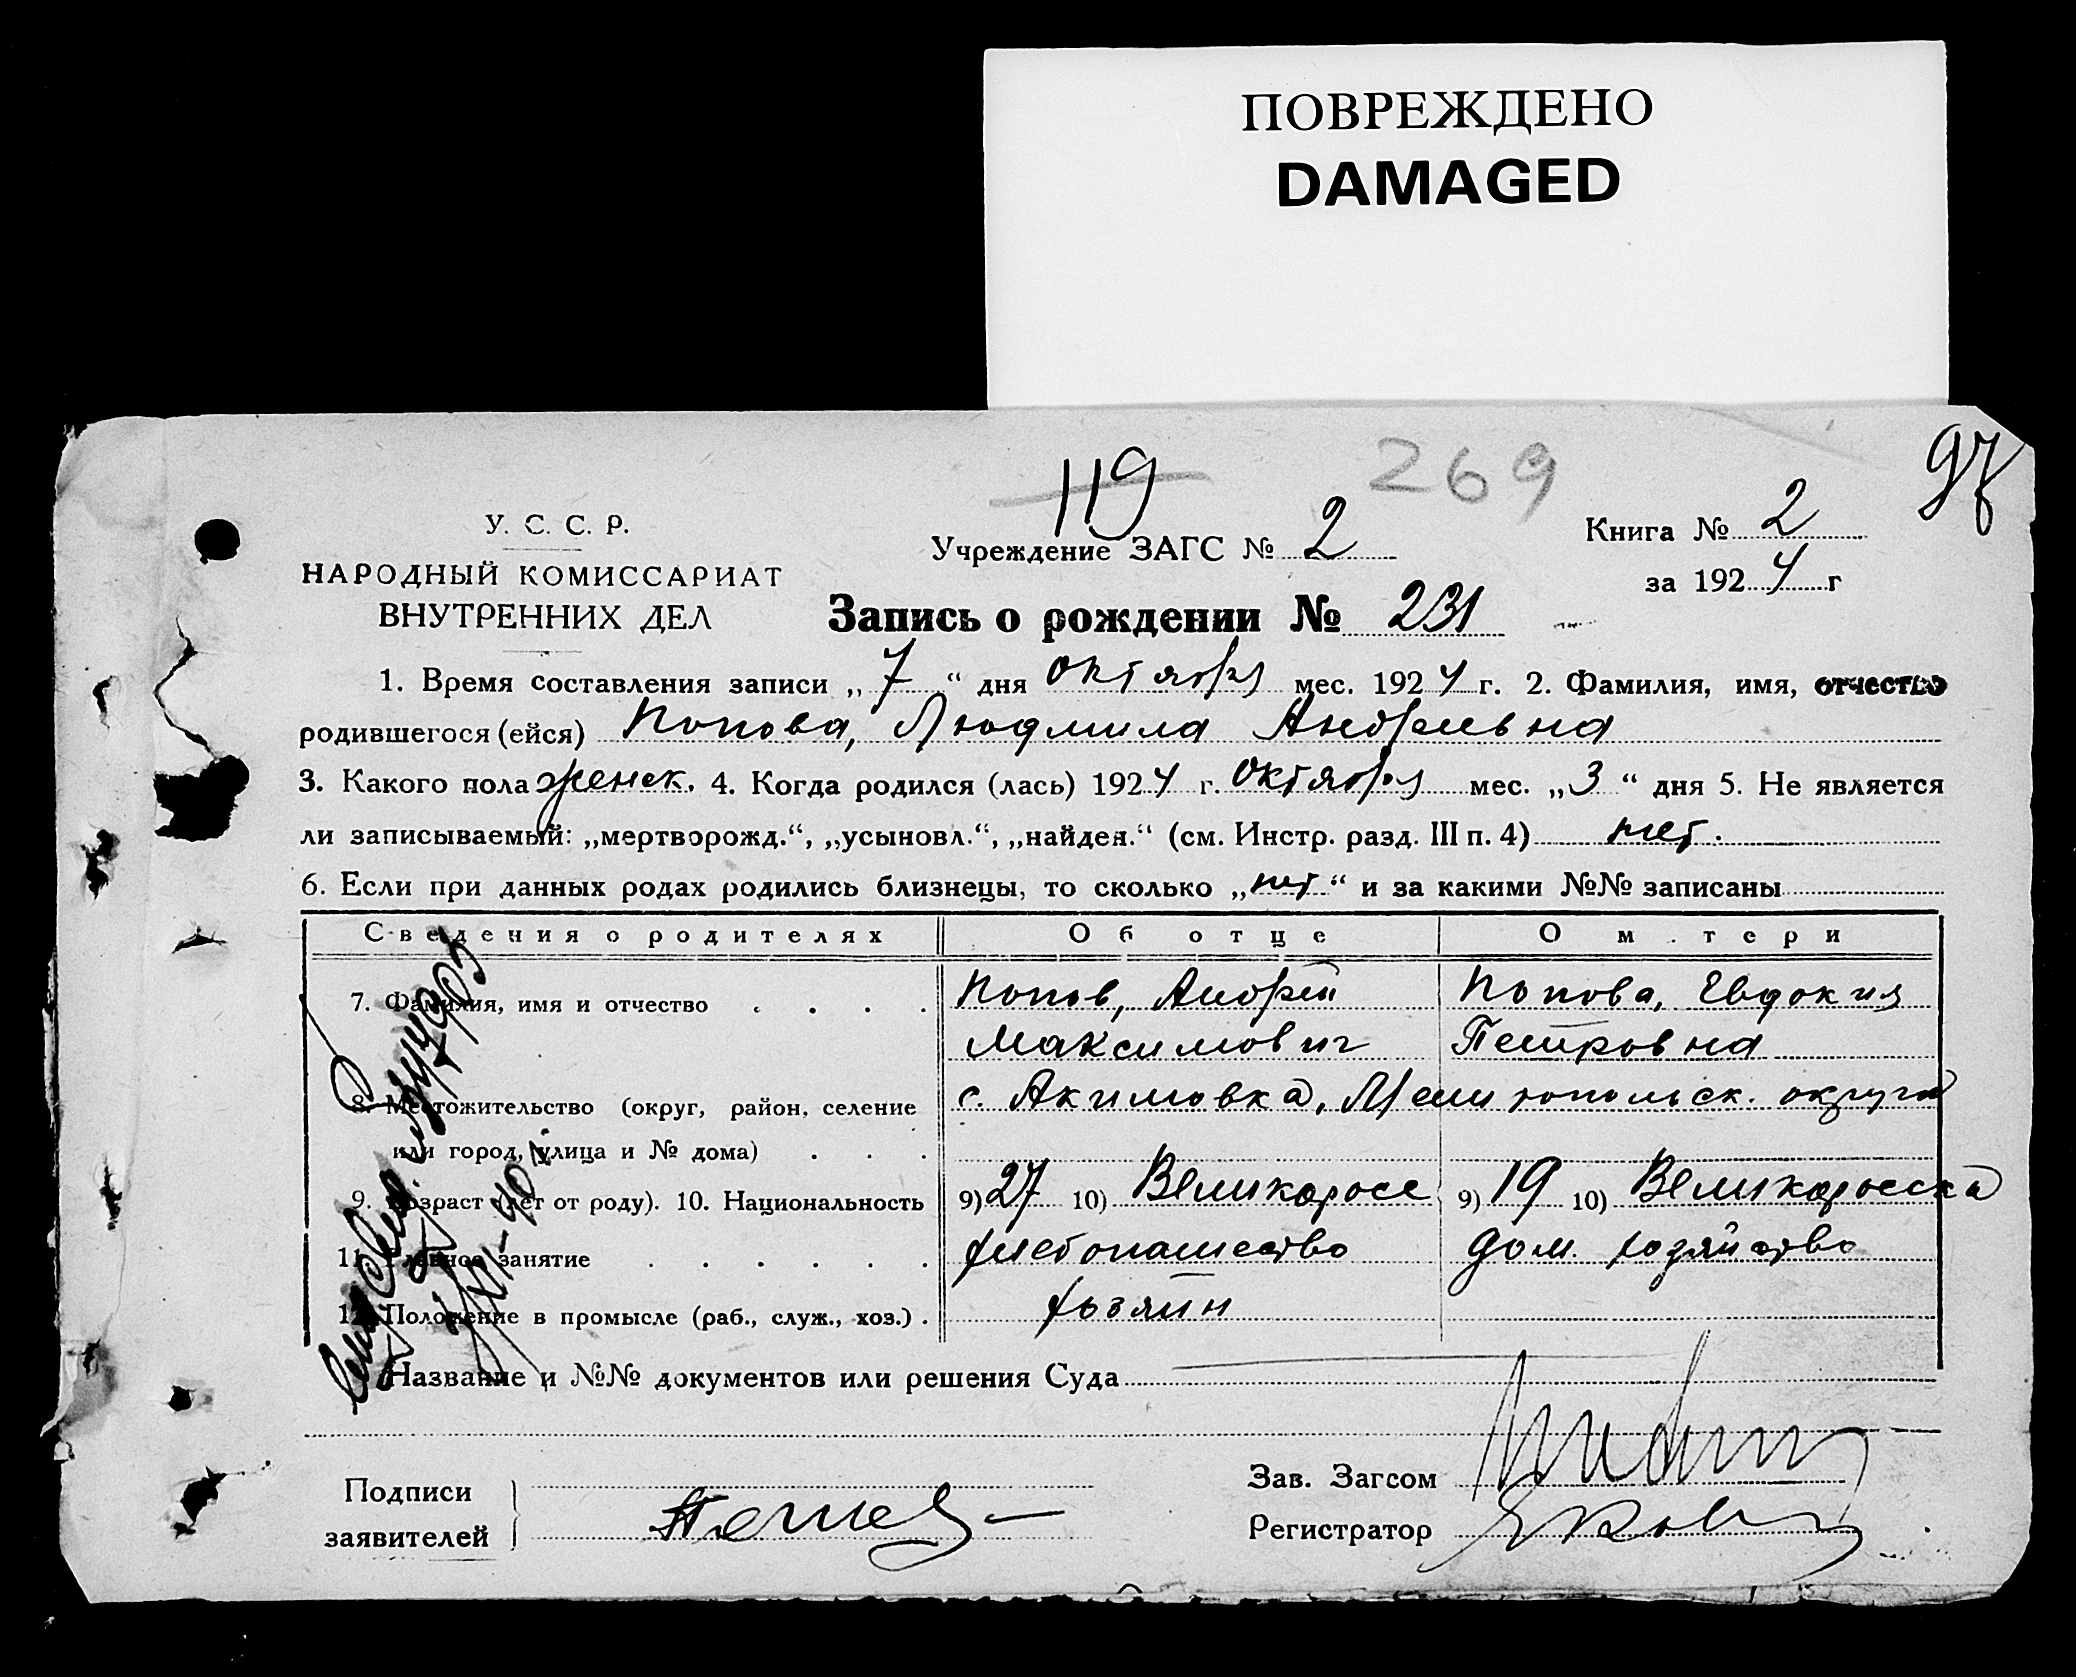 ПОВРЕЖДЕНО
DAMAGED
119 269 97
У. С. С. Р.
НАРОДНЫЙ КОМИССАРИАТ
ВНУТРЕННИХ ДЕЛ
Учреждение ЗАГС № 2
Книга № 2
за 1924 г
Запись о рождении № 231
1. Время составления записи „7“ дня октября мес. 1924 г. 2. Фамилия, имя, отчество
родившегося (ейся) Попова, Людмила Андреевна
3. Какого пола женск. 4. Когда родился (лась) 1924 г. октября мес. „3“ дня 5. Не является
ли записываемый: „мертворожд.“, „усыновл.“, „найден.“ (см. Инстр. разд. III п. 4) нет.
6. Если при данных родах родились близнецы, то сколько „нет“ и за какими №№ записаны
Сведения о родителях Об отце О матери
7. Фамилия, имя и отчество . . . . Попов, Андрей Попова, Евдокия
Максимович Петровна
8. Местожительство (округ, район, селение с. Акимовка, Мелитопольск. округа
или город, улица и № дома) . . .
9. Возраст (лет от роду). 10. Национальность 9) 27 10) Великоросс 9) 19 10) Великоросска
11. Главное занятие . . . . . . хлебопашество дом. хозяйство
12. Положение в промысле (раб., служ., хоз.) . хозяин
Название и №№ документов или решения Суда
Подписи
заявителей
Зав. Загсом
Регистратор